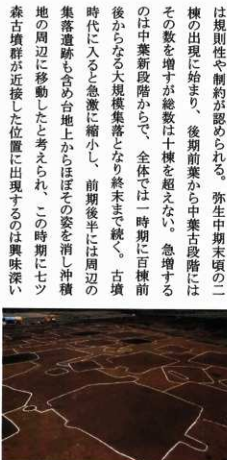 は規則性や制約が認められる。弥生中期末頃の二
棟の出現に始まり、後期前葉から中葉古段階には
その数を増すが総数は十棟を超えない。急増する
のは中葉新段階からで、全体では一時期に百棟前
後からなる大規模集落となり終末まで続く。古墳
時代に入ると急激に縮小し、前期後半には周辺の
集落遺跡も含め台地上からほぼその姿を消し沖積
地の周辺に移動したと考えられ、この時期に七ツ
森古墳群が近接した位置に出現するのは興味深い